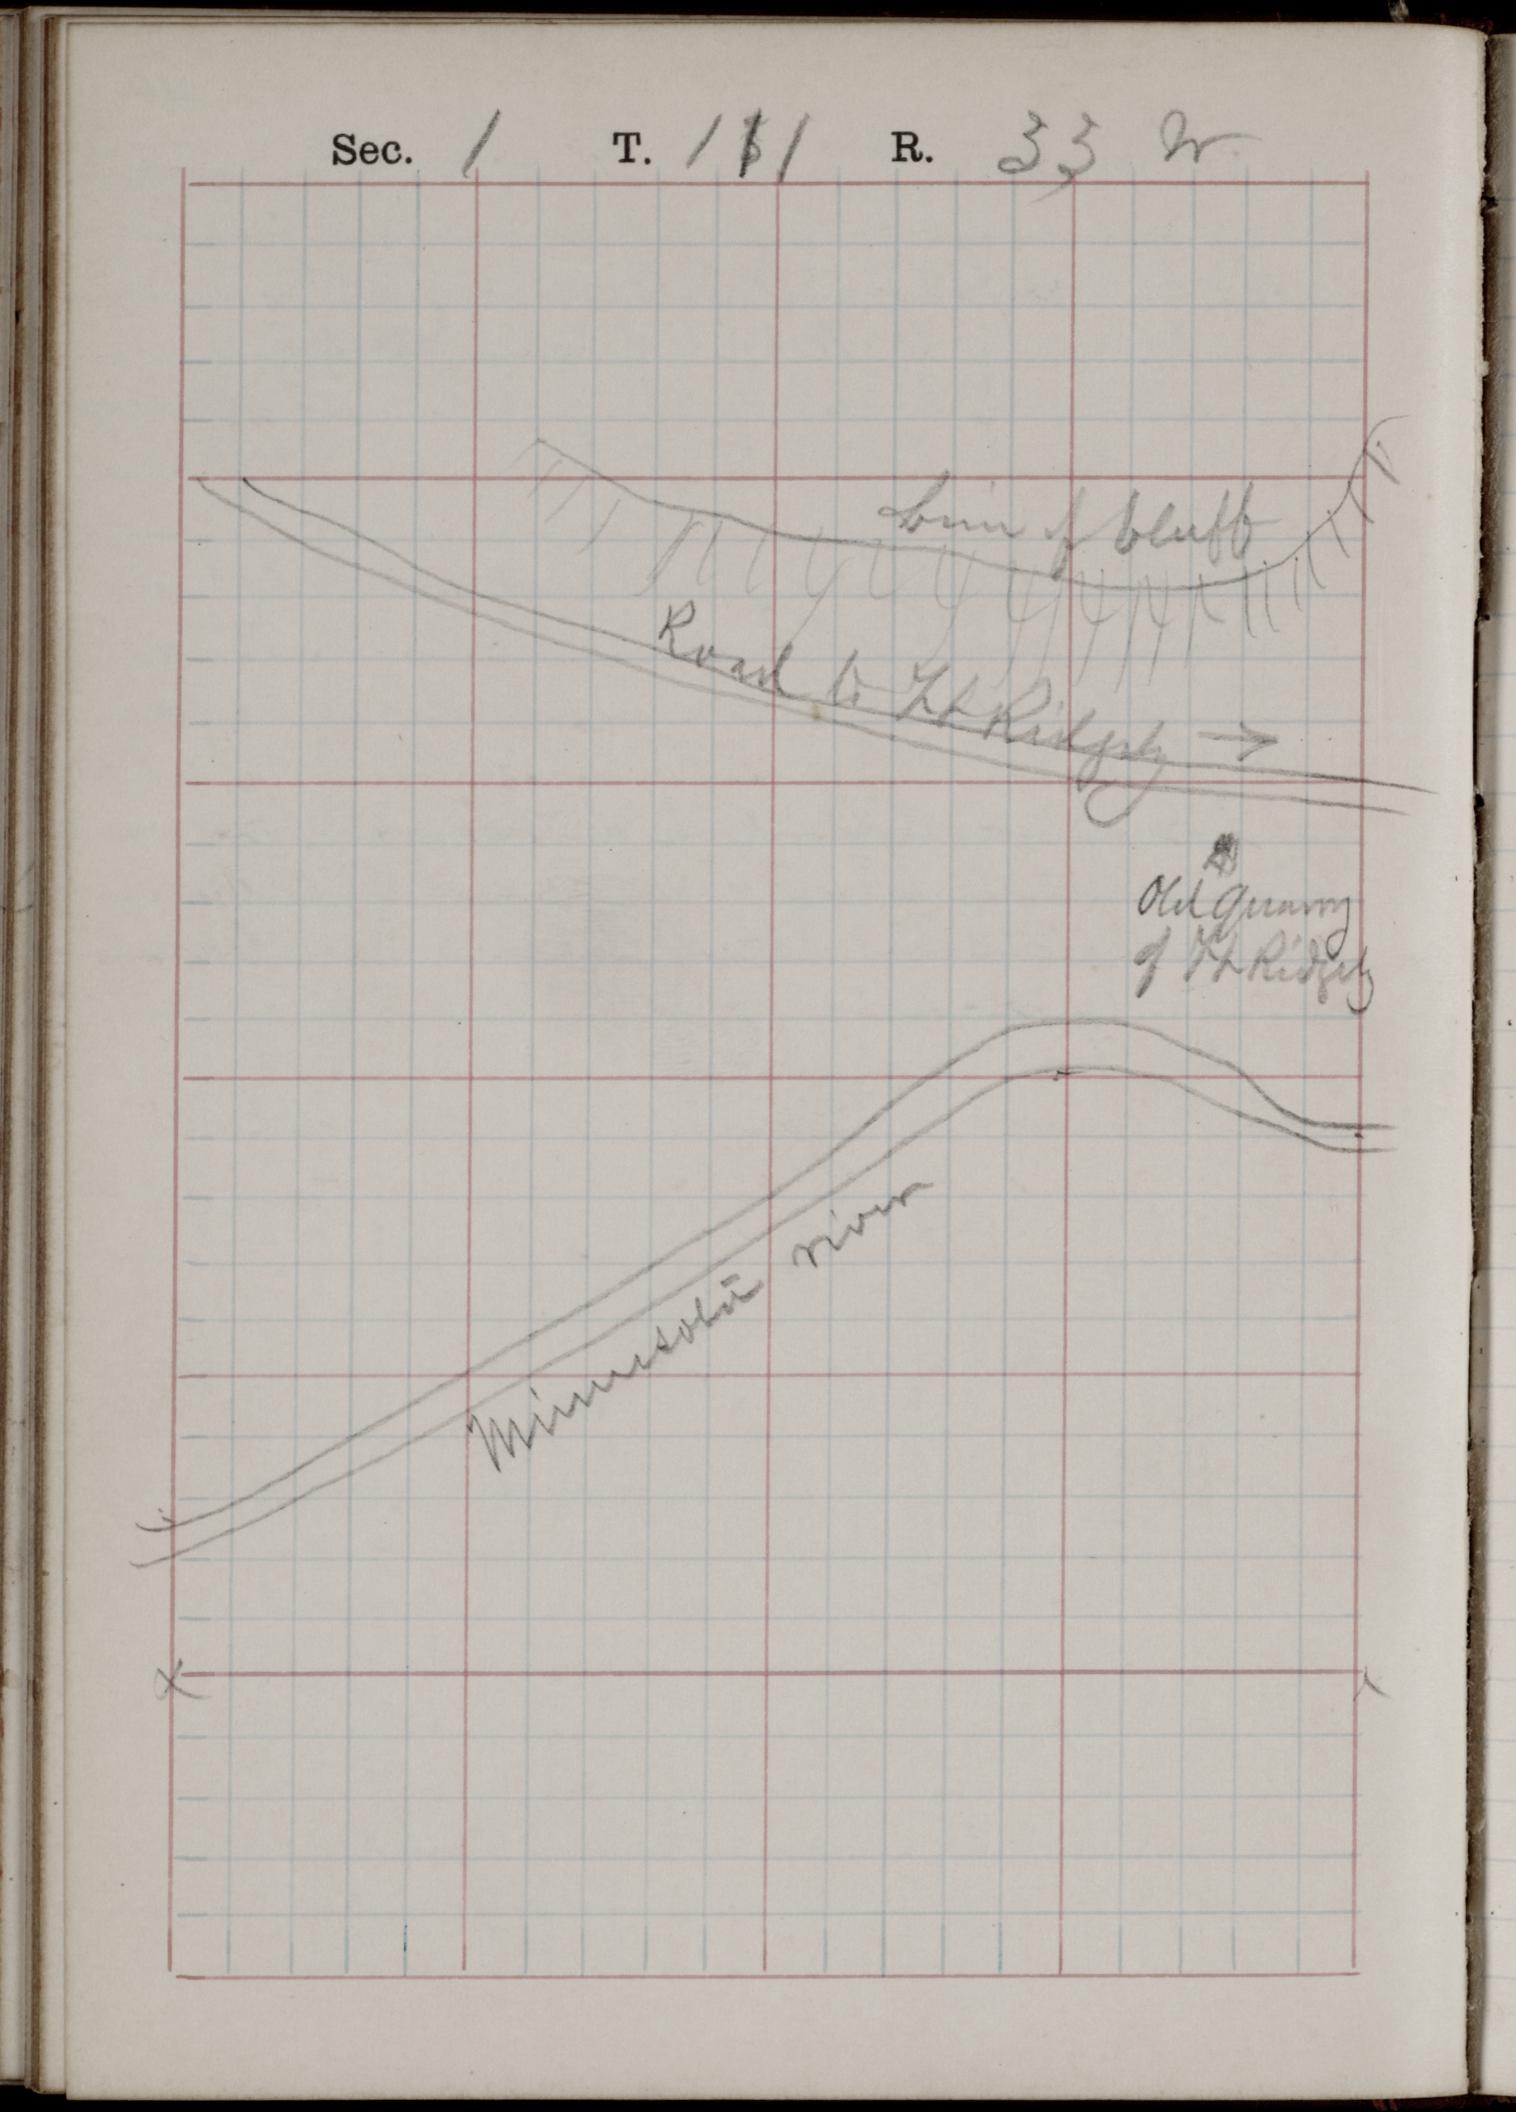 Sec. 1 T. 111 R. 33 W
brim of bluff
Road to Ft Ridgely →
Old Quarry
of Ft Ridgely
Minnesota river
x x